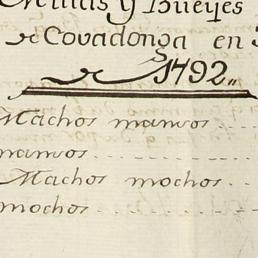 y Bueyes
de Covadonga en
de 1792,,
Machos mansos
mansos
Machos mochos
mochos